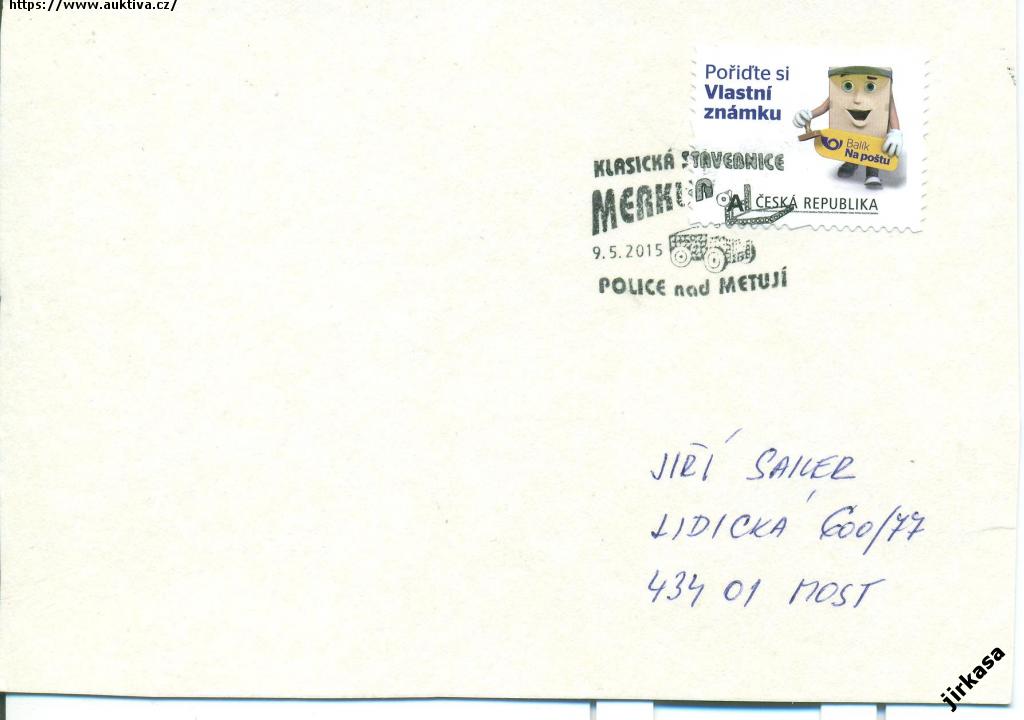 https://www.auktiva.cz/
Pořiďte si
Vlastní
známku
Balík
Na poštu
KLASICKÁ STAVEBNICE
MERKUR
A ČESKÁ REPUBLIKA
9.5.2015
POLICE nad METUJÍ
JIŘÍ
LIDICKÁ 600/77
434 01 MOST
jirkasa